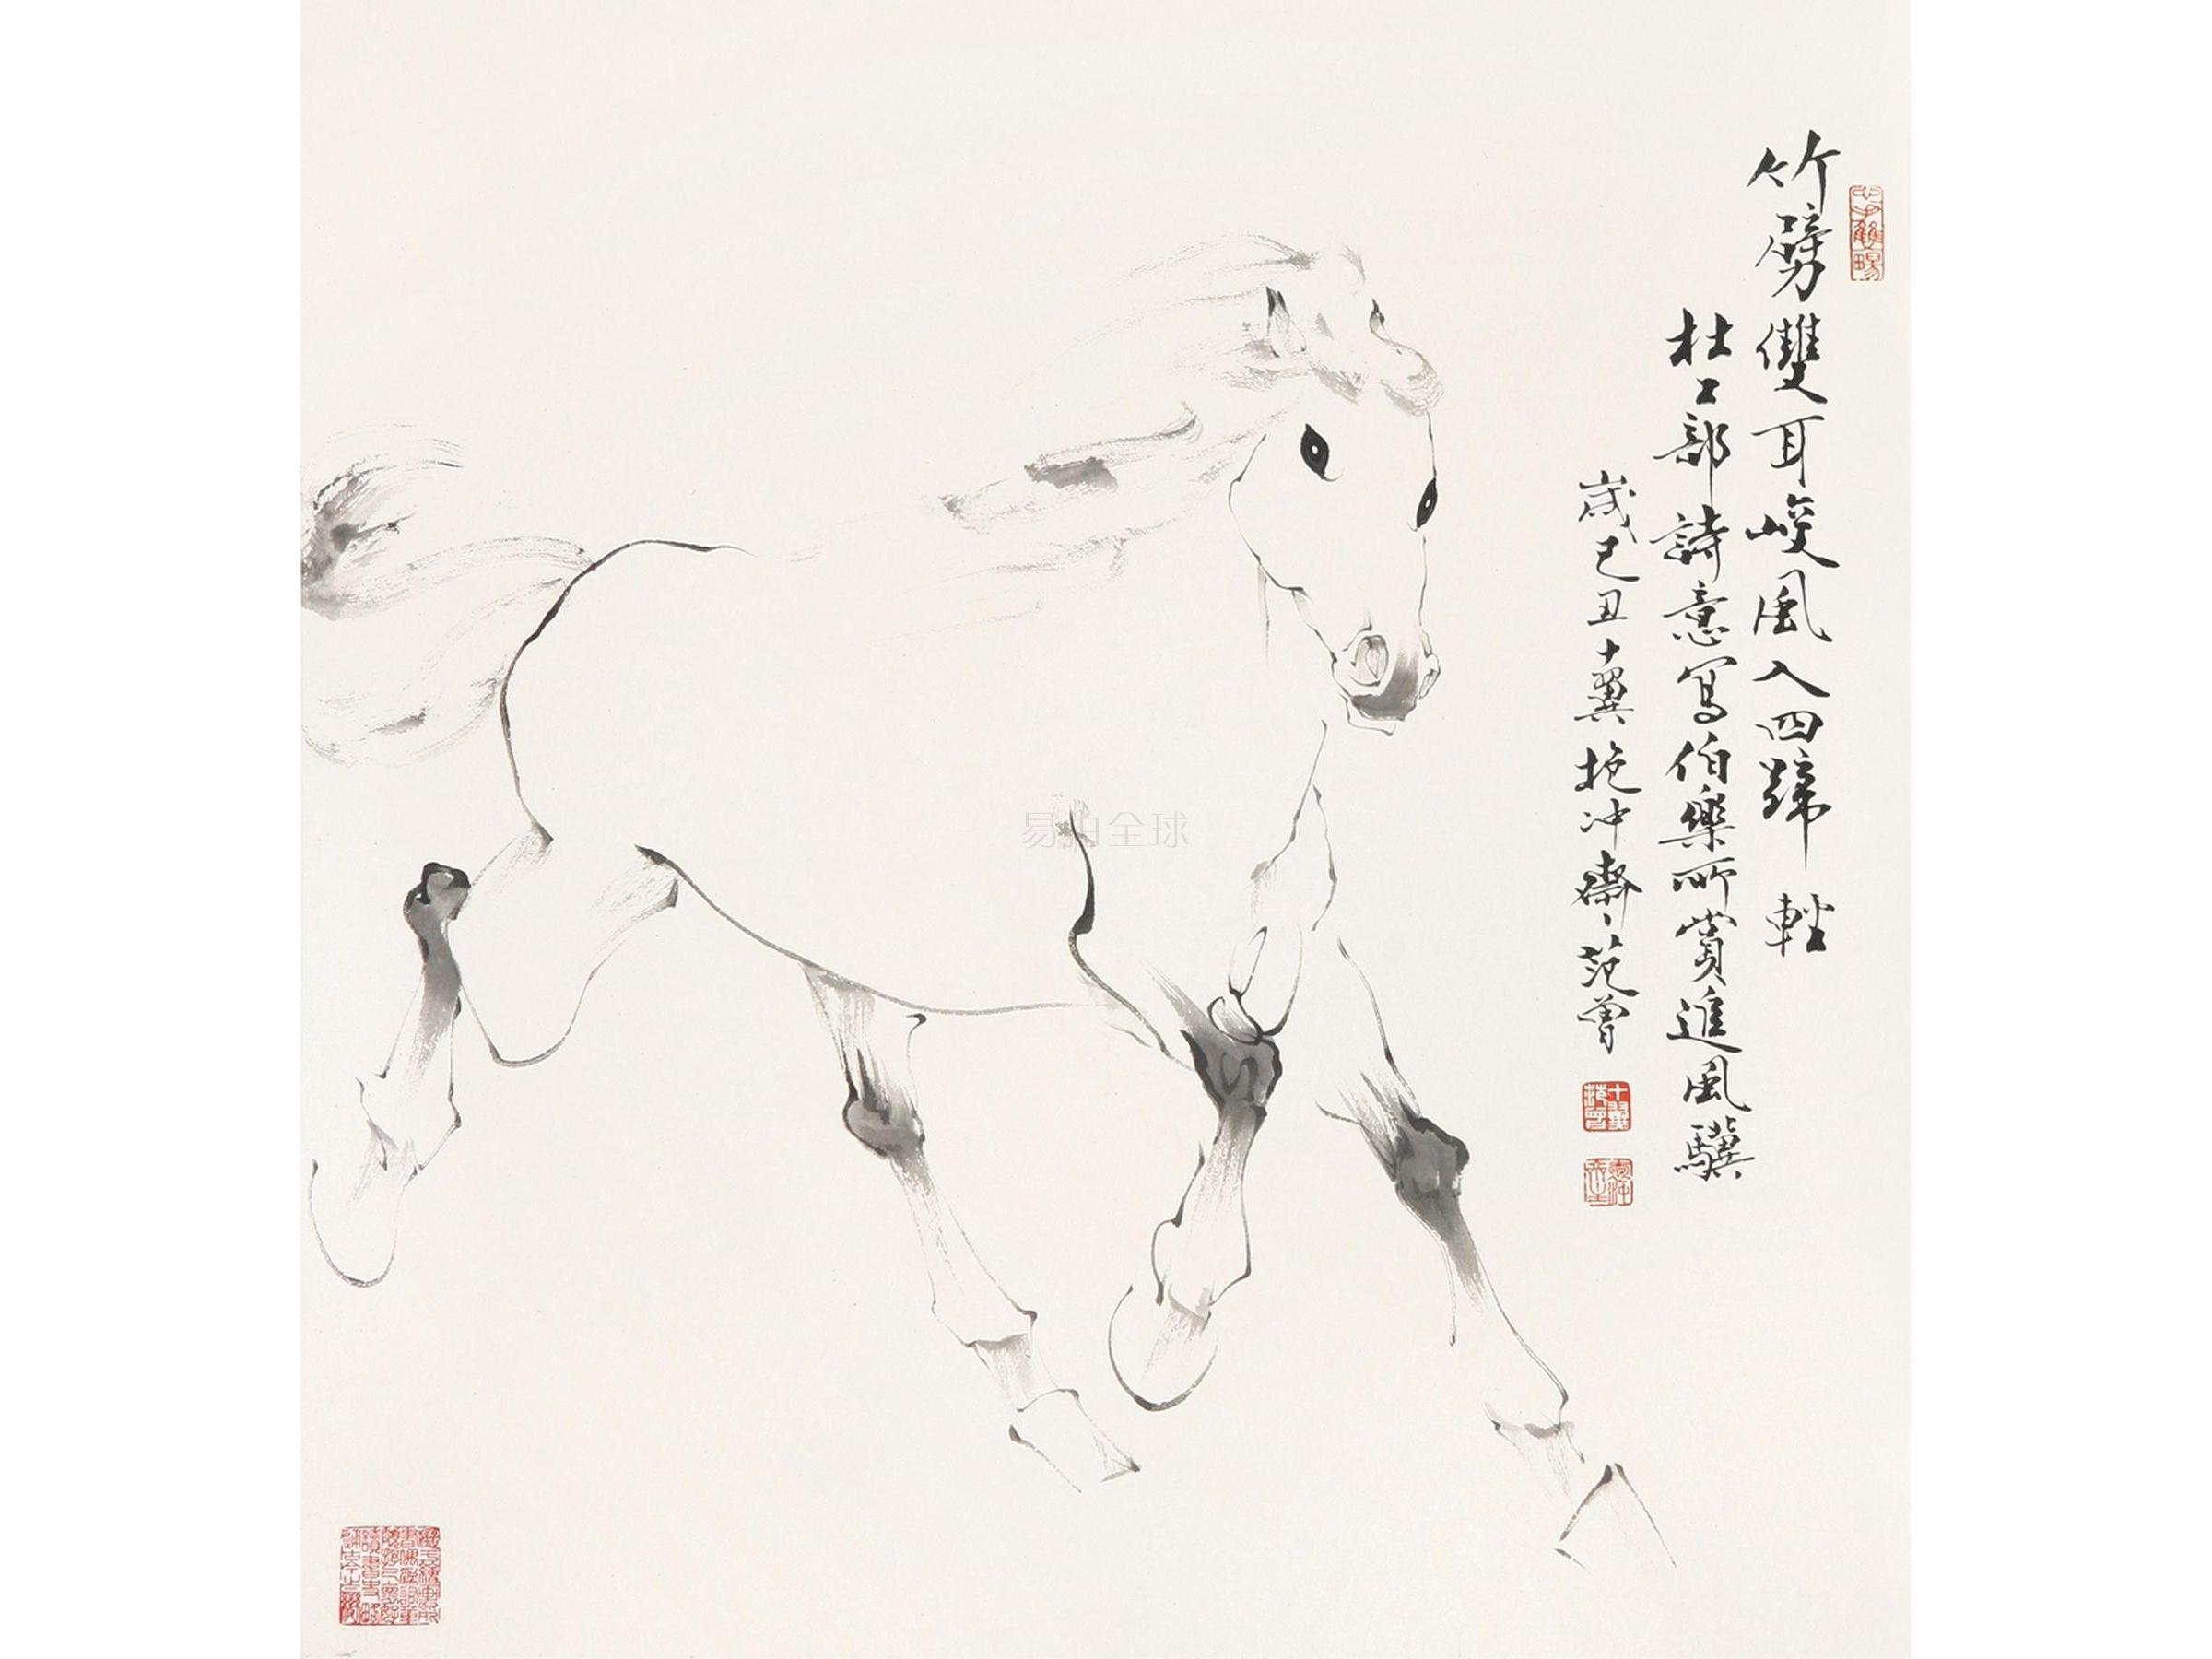 竹劈雙耳峻風入四蹄輕
杜工部詩意寫伯樂所賞追風驥
歲己丑十翼抱冲齋范曾
十翼范曾
易拍全球